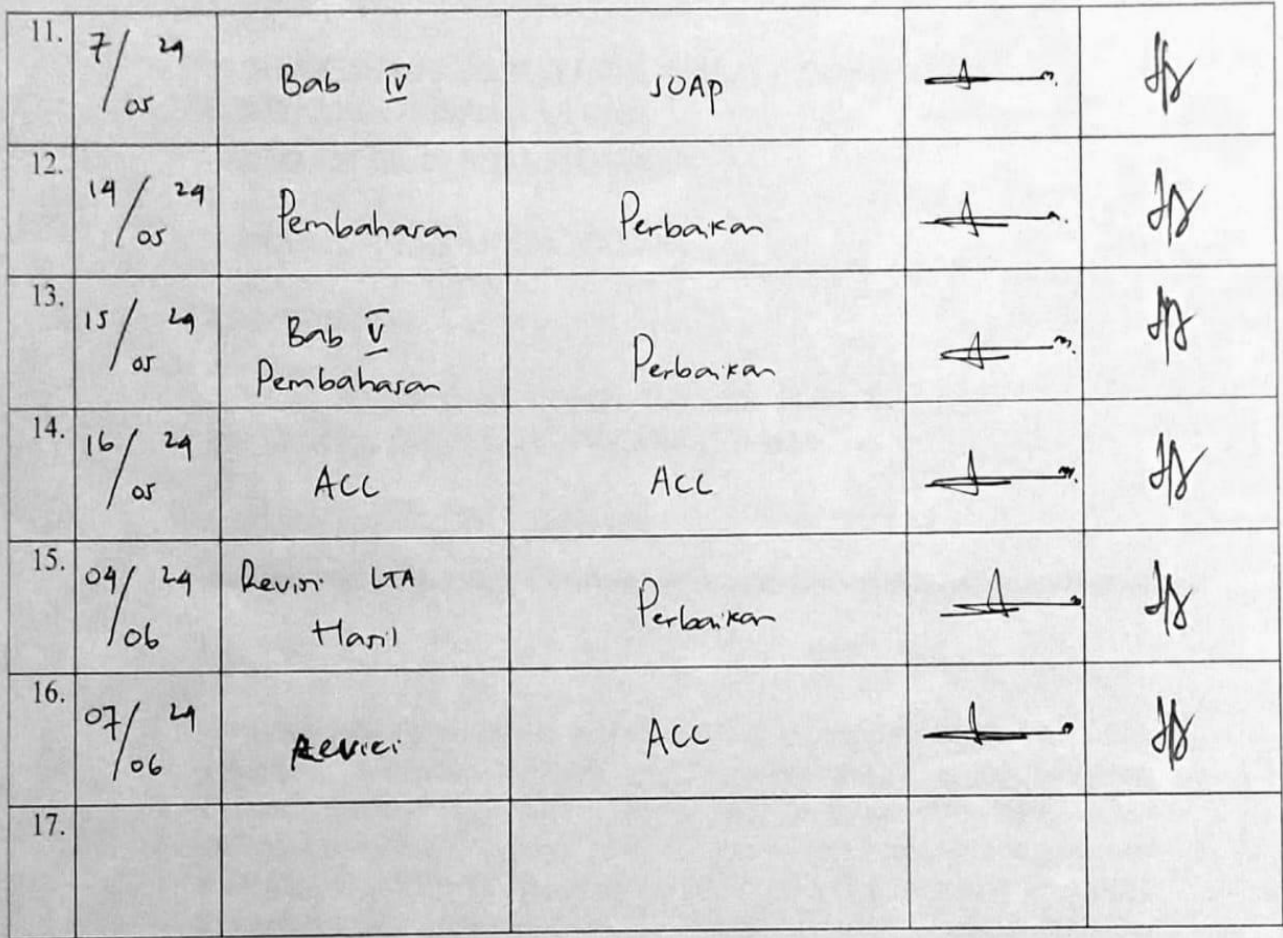 11.
7/05 24
Bab IV
SOAP
12.
14/05 24
Pembahasan
Perbaikan
13.
15/05 24
Bab V
Pembahasan
Perbaikan
14.
16/05 24
ACC
ACC
15.
04/06 24
Revisi LTA
Hasil
Perbaikan
16.
07/06 24
Revisi
ACC
17.